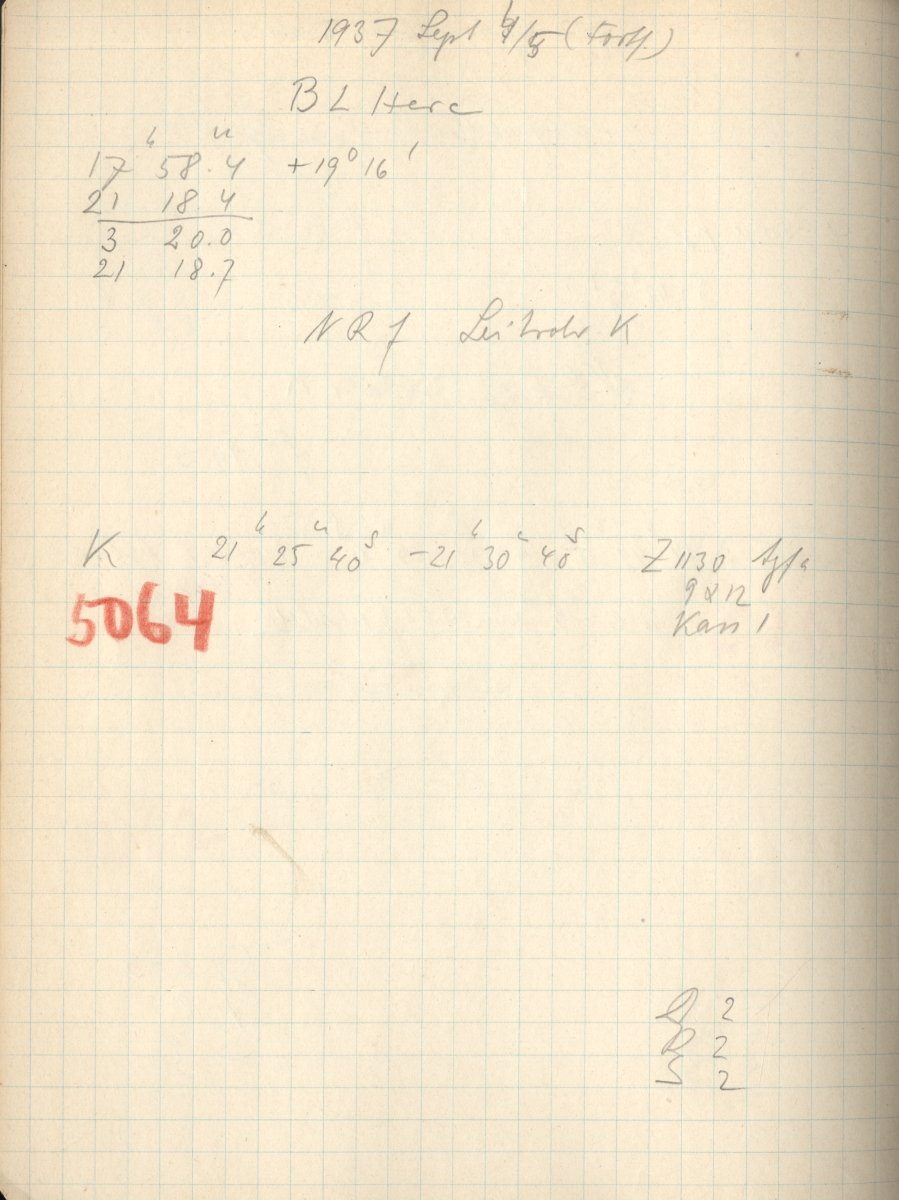 1937 Sept 4/5 (Forts.)
BL Herc
17h 58m.4 +19° 16'
21 18.4
3 20.0
21 18.7
NRf Leitrohr K
K 21h 25m 40s – 21h 30m 40s Z 1130 Agfa
5064
9 x 12
Kass 1
2
2
2